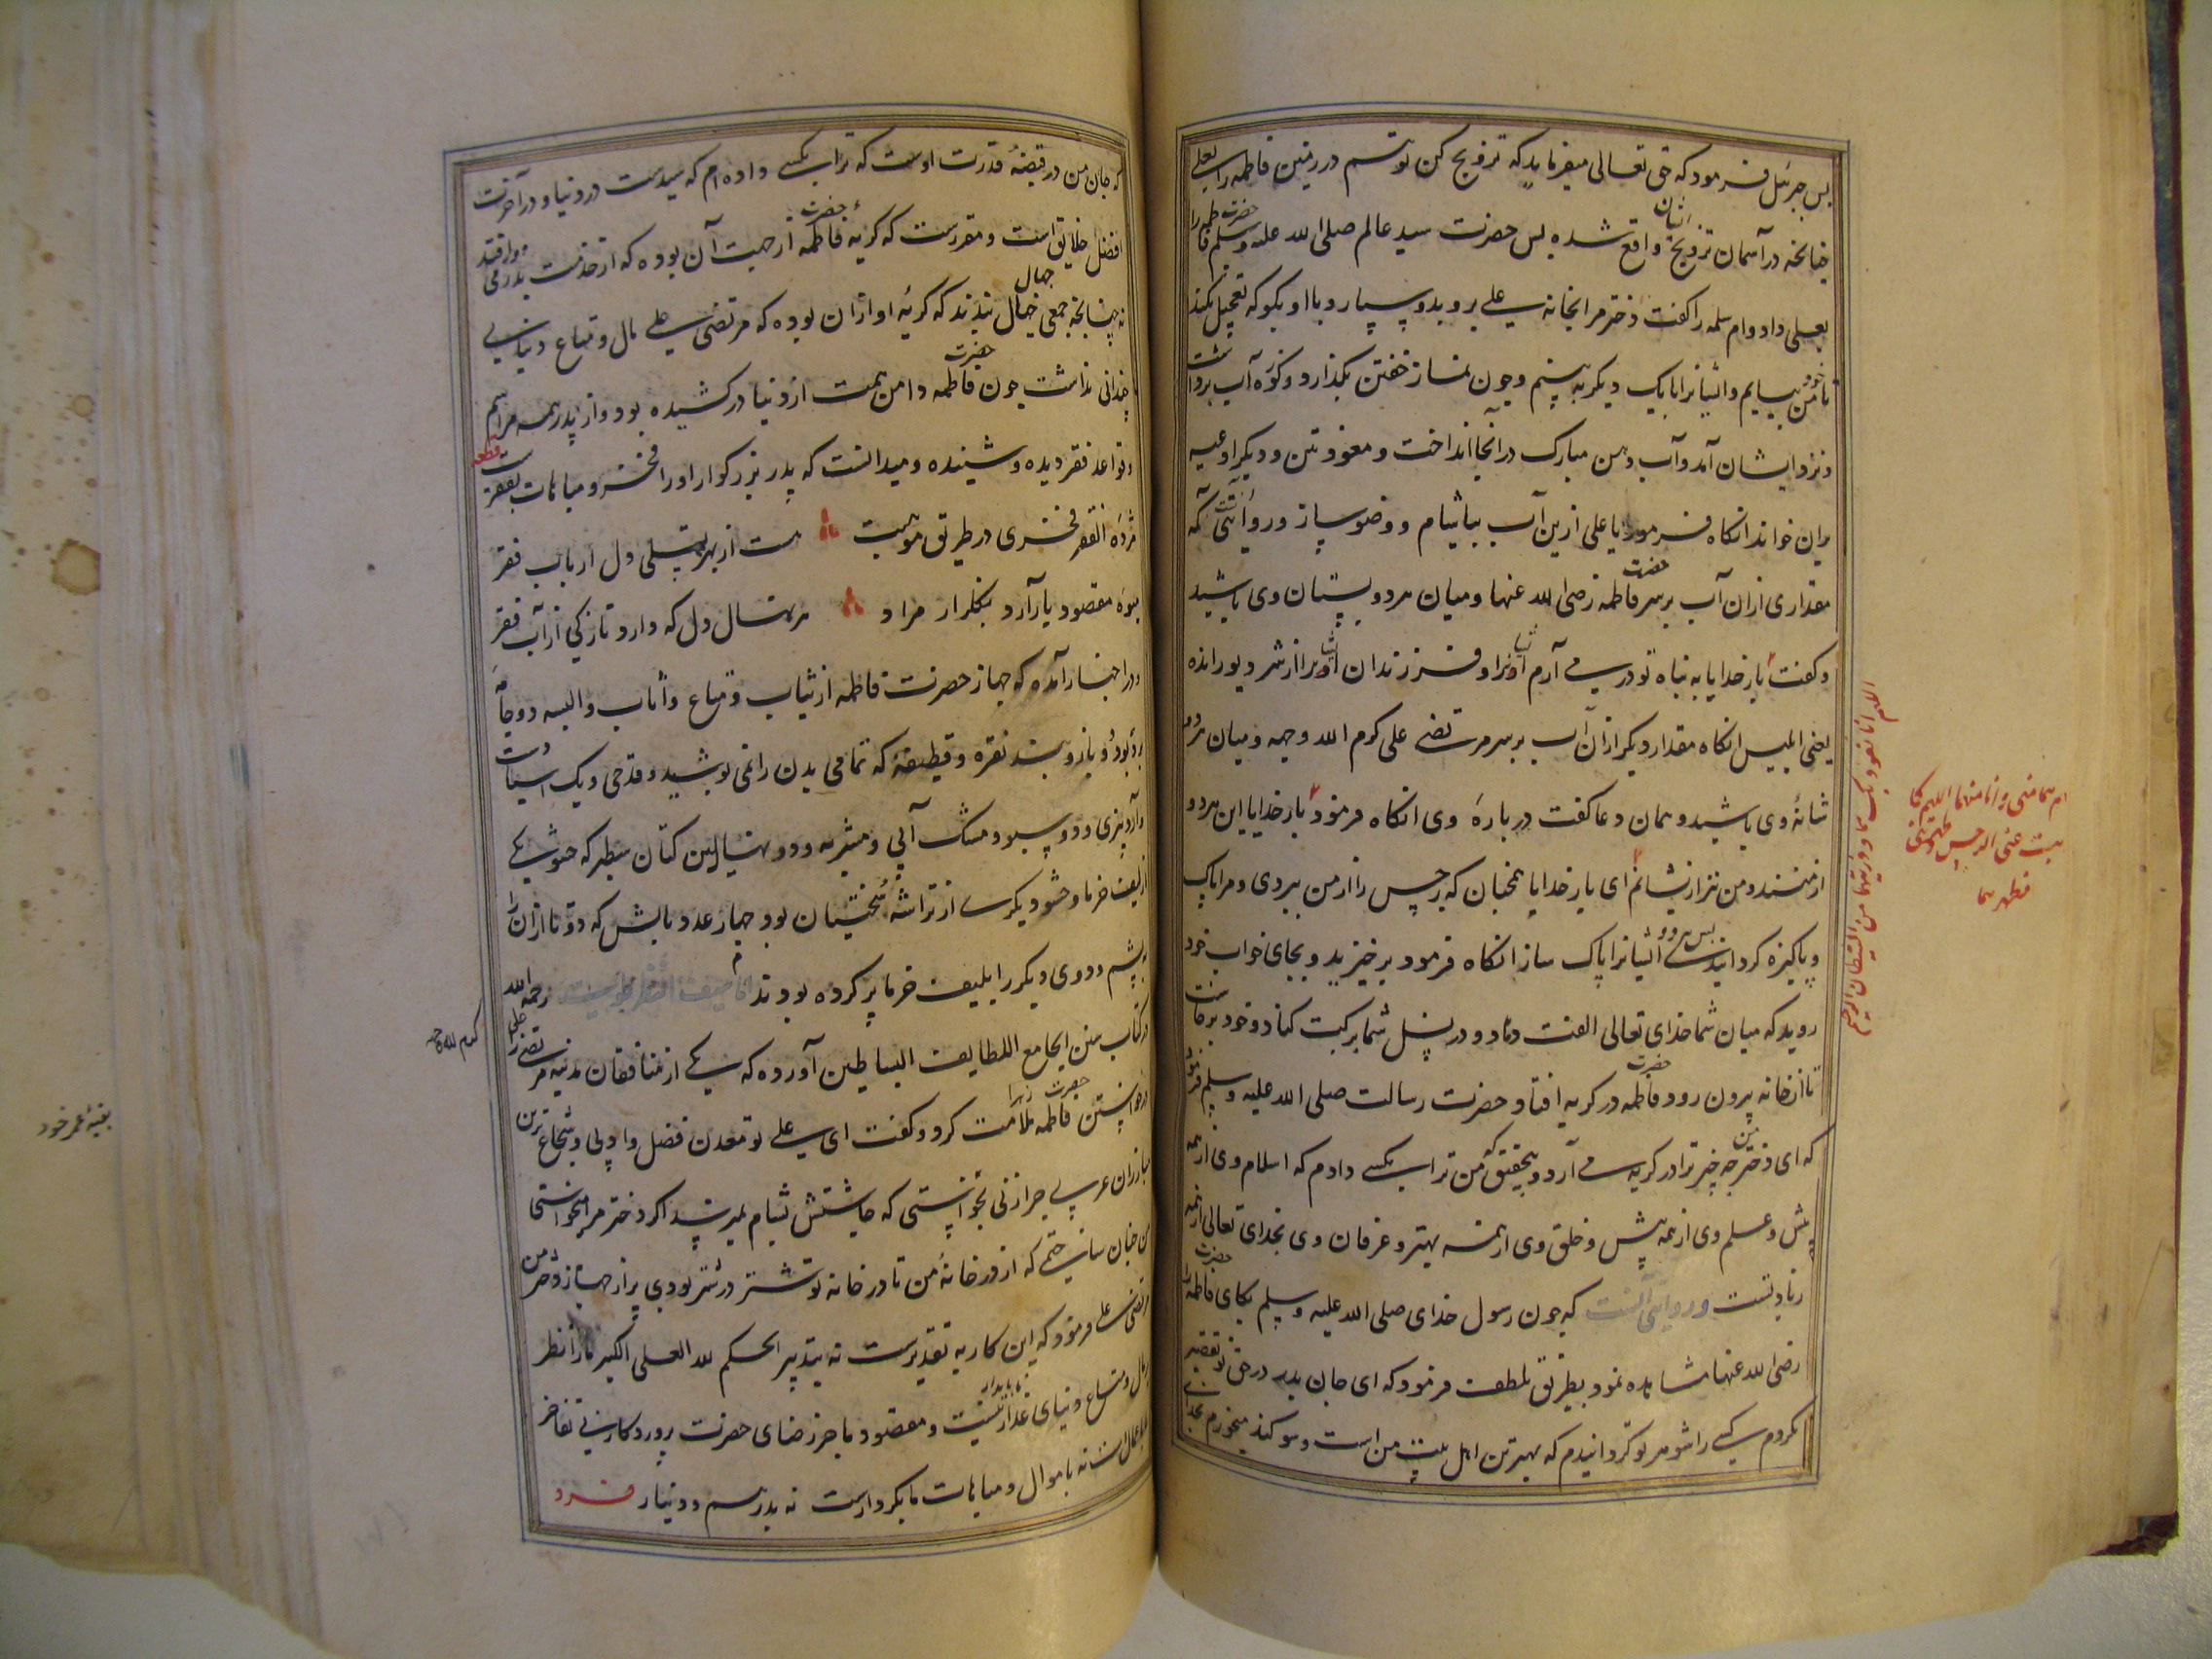 پس جبرئیل فرمود که حق تعالی میفرماید که تزویج کن تو هم در زمین فاطمه را بعلی
چنانچه در آسمان تزویج ایشان واقع شده پس حضرت سید عالم صلی الله علیه وسلم حضرت فاطمه را
بعلی داد و ام سلمه را گفت دختر مرا بخانه علی برو بدو سپار و با او بگو که تعجیل نکند
تا من خود بیایم و ایشانرا با یک دیگر به بینم و چون نماز خفتن بگذارد و کوزه آب برداشت
و نزد ایشان آمد و آب دهن مبارک در آنجا انداخت و معوذتین و دیگر ادعیه
بران خواند آنگاه فرمود یا علی ازین آب بیاشام و وضو بساز و روایتی آنست که
مقداری ازان آب بر سر حضرت فاطمه رضی الله عنها و میان هر دو پستان وی پاشید
و گفت بار خدایا به پناه تو در می آرم او را و فرزندان او را از شر دیو رانده
یعنی ابلیس آنگاه مقدار دیگر ازان آب بر سر مرتضی علی کرم الله وجهه و میان هر دو
شانهٔ وی پاشید و همان دعا گفت در بارهٔ وی آنگاه فرمود بار خدایا این هر دو
از منند و من نیز از ایشانم ای بار خدایا همچنان که رجس را از من ببردی و مرا پاک
و پاکیزه گردانیدی پس هر دو ایشانرا پاک ساز آنگاه فرمود برخیزید و بجای خواب خود
روید که میان شما خدای تعالی الفت دهاد و در نسل شما برکت کناد و خود برخاست
تا از خانه بیرون رود حضرت فاطمه در گریه افتاد حضرت رسالت صلی الله علیه وسلم فرمود
که ای دختر من چه چیز ترا در گریه می آرد و بتحقیق که من ترا بکسی دادم که اسلام وی از همه
پیش و علم وی از همه بیش و خلق وی از همه بهتر و عرفان وی بخدای تعالی از همه
زیادتست و روایتی آنست که چون رسول خدای صلی الله علیه وسلم بکای حضرت فاطمه را
رضی الله عنها مشاهده نمود بطریق تلطف فرمود که ای جان پدر در حق تو تقصیر
نکردم کسی را شوهر تو گردانیدم که بهترین اهل بیت من است و سوگند میخورم بخدای
اللهم انا نعوذ بک هما و ذریتهما من الشیطان الرجیم
انهما منی و انا منهما اللهم کما
عنی الرجس وطهرتنی
فطهرهما
که جان من در قبضهٔ قدرت اوست که ترا بکسی داده ام که سیدست در دنیا و در آخرت
افضل خلایق است و مقررست که گریهٔ حضرت فاطمه از جهت آن بوده که از خدمت پدر می
نه چنانچه جمعی جهال خیال بندند که گریهٔ او ازان بوده که مرتضی علی مال و متاع دنیایی
چندانی نداشت چون حضرت فاطمه دامن همت از دنیا در کشیده بود و از پدر همه مراسم
و قواعد فقر دیده و شنیده و میدانست که پدر بزرگوار او را فخر و مباهات بفقرست قطعه
مژدهٔ الفقر فخری در طریق موهبت هست از بهر تسلی دل ارباب فقر
میوهٔ مقصود یار آرد بگلزار مراد هر نهال دل که دارد تازگی از آب فقر
و در اخبار آمده که جهاز حضرت فاطمه از ثیاب و متاع و اثاب والبسه دو جامهٔ
برد بود و بازوبند نقره و قطیفهٔ که تمامی بدن را نمی پوشید و قدحی و یک آسیا
و آردبیزی و دو سبو و مشک آبی و مشربه و دو نهالین کتان سطبر که حشو یکی
از لیف خرما و حشو دیگری از تراشهٔ بود چهار عدد بالش که دو تا ازان را
به پشم و دوی دیگر را بلیف خرما پر کرده بودند رحمه الله
در کتاب اللطایف البساطین آورده که یکی از منافقان مدینه مرتضی علی را
کرم الله وجهه
درخواستن حضرت فاطمه زهرا ملامت کرد و گفت ای علی تو معدن فضل و ادبی و شجاع ترین
مبارزان عرب چرا زنی بخواستی که چاشتش بشام نمیرسد اگر دختر مرا میخواستی
من چنان ساختمی که از در خانهٔ من تا در خانه تو شتر در شتر بودی پر از جهاز دختر من
مرتضی علی فرمود که این کار به تقدیرست نه بتدبیر الحکم لله العلی الکبیر ما را نظر
بمال و متاع دنیای غدار ناپایدار نیست و مقصود ما جز رضای حضرت پروردگار نی تفاخر
ما باعمال است نه باموال و مباهات ما بکردارست نه بدرهم و دینار فرد
بقیهٔ عمر خود